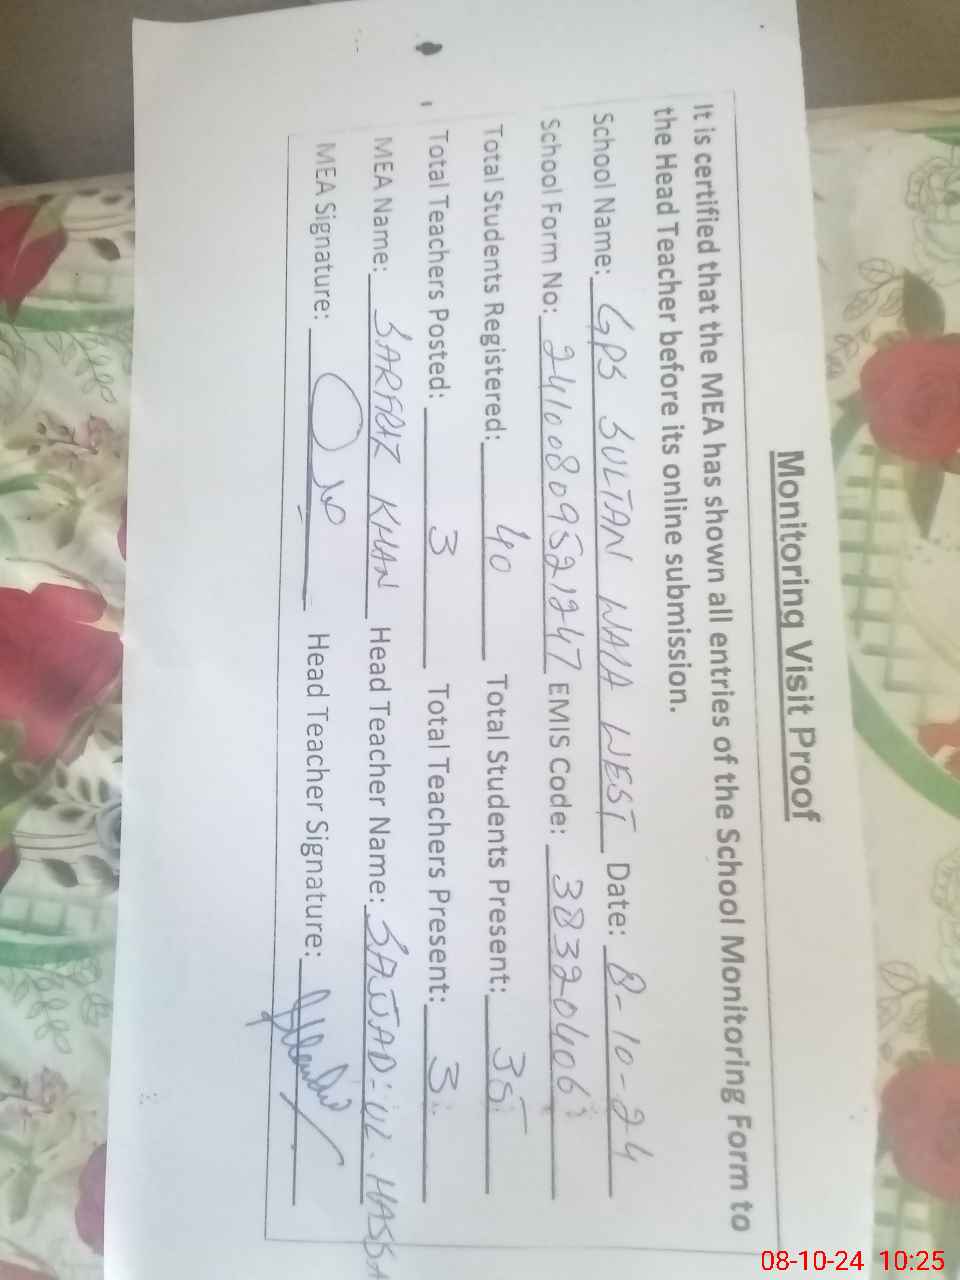 Monitoring Visit Proof
It is certified that the MEA has shown all entries of the School Monitoring Form to
the Head Teacher before its online submission.
School Name: GPS SULTAN WALA WEST Date: 8-10-24
School Form No: 24100809521247 EMIS Code: 38320406
Total Students Registered: 40 Total Students Present: 35
Total Teachers Posted: 3 Total Teachers Present: 3
MEA Name: SARFRAZ KHAN Head Teacher Name: SAJJAD-UL-HASSA
MEA Signature: Head Teacher Signature:
08-10-24 10:25